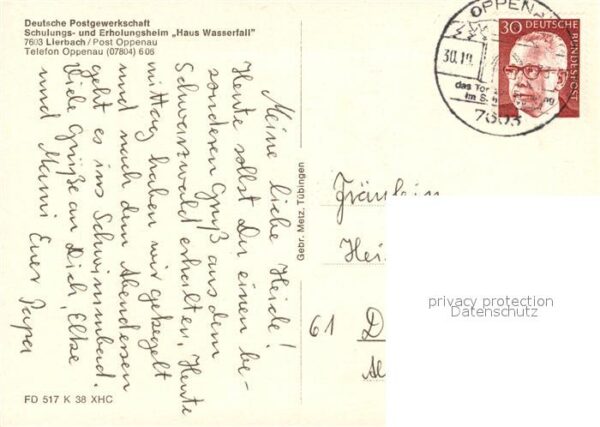 Deutsche Postgewerkschaft
Schulungs- und Erholungsheim „Haus Wasserfall"
7603 Lierbach/Post Oppenau
Telefon Oppenau (07804) 606
Meine liebe Heide!
Heute sollst Du einen be-
sonderen Gruß aus dem
Schwarzwald erhalten. Heute
mittag haben wir gekegelt
und nach dem Abendessen
geht es ins Schwimmbad.
Viele Grüße an Dich, Elke
und Mammi Euer Papa
FD 517 K 38 XHC
Gebr. Metz, Tübingen
OPPENAU
30.10.
das Tor
im
7603
30 DEUTSCHE
BUNDESPOST
Fräulein
Hei
61 D
privacy protection
Datenschutz